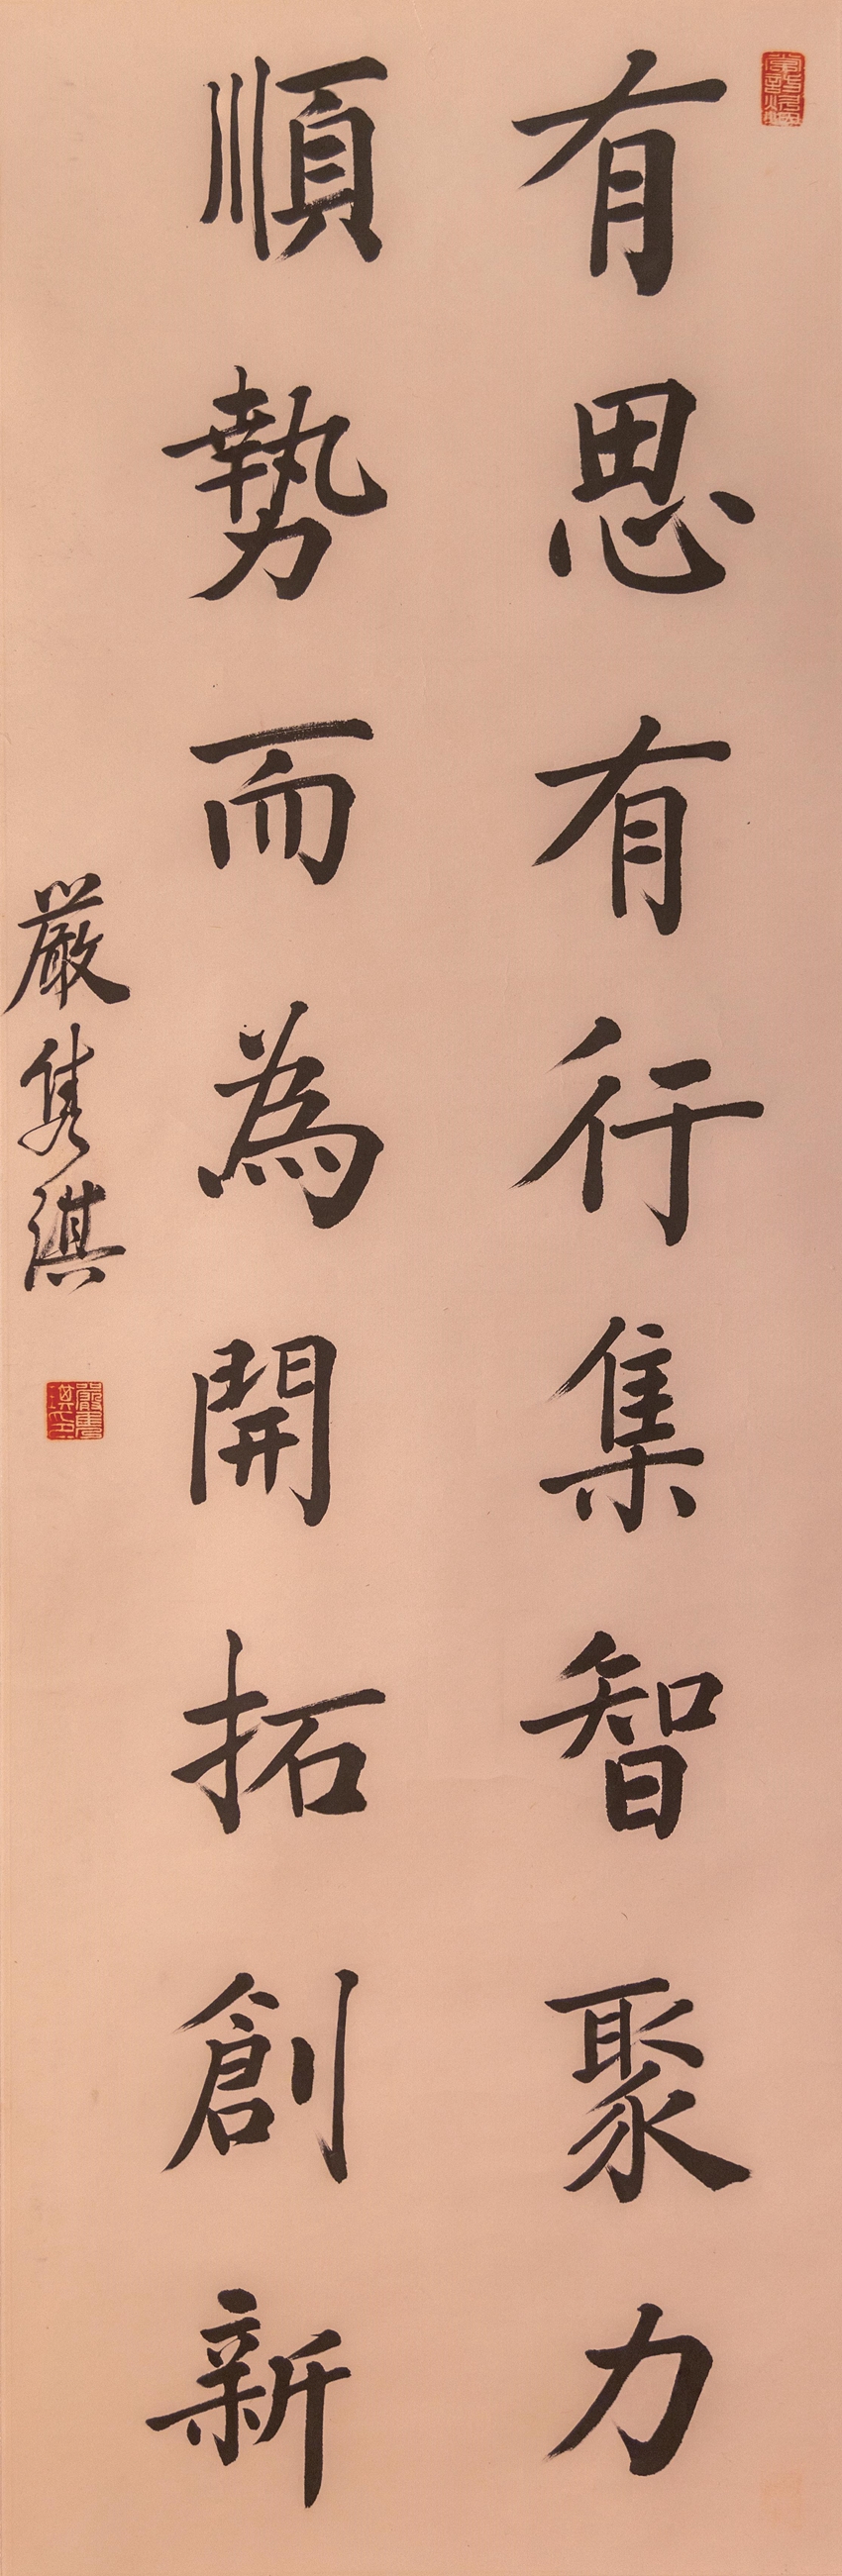 有思有行集智聚力
順勢而為開拓創新
嚴雋淇